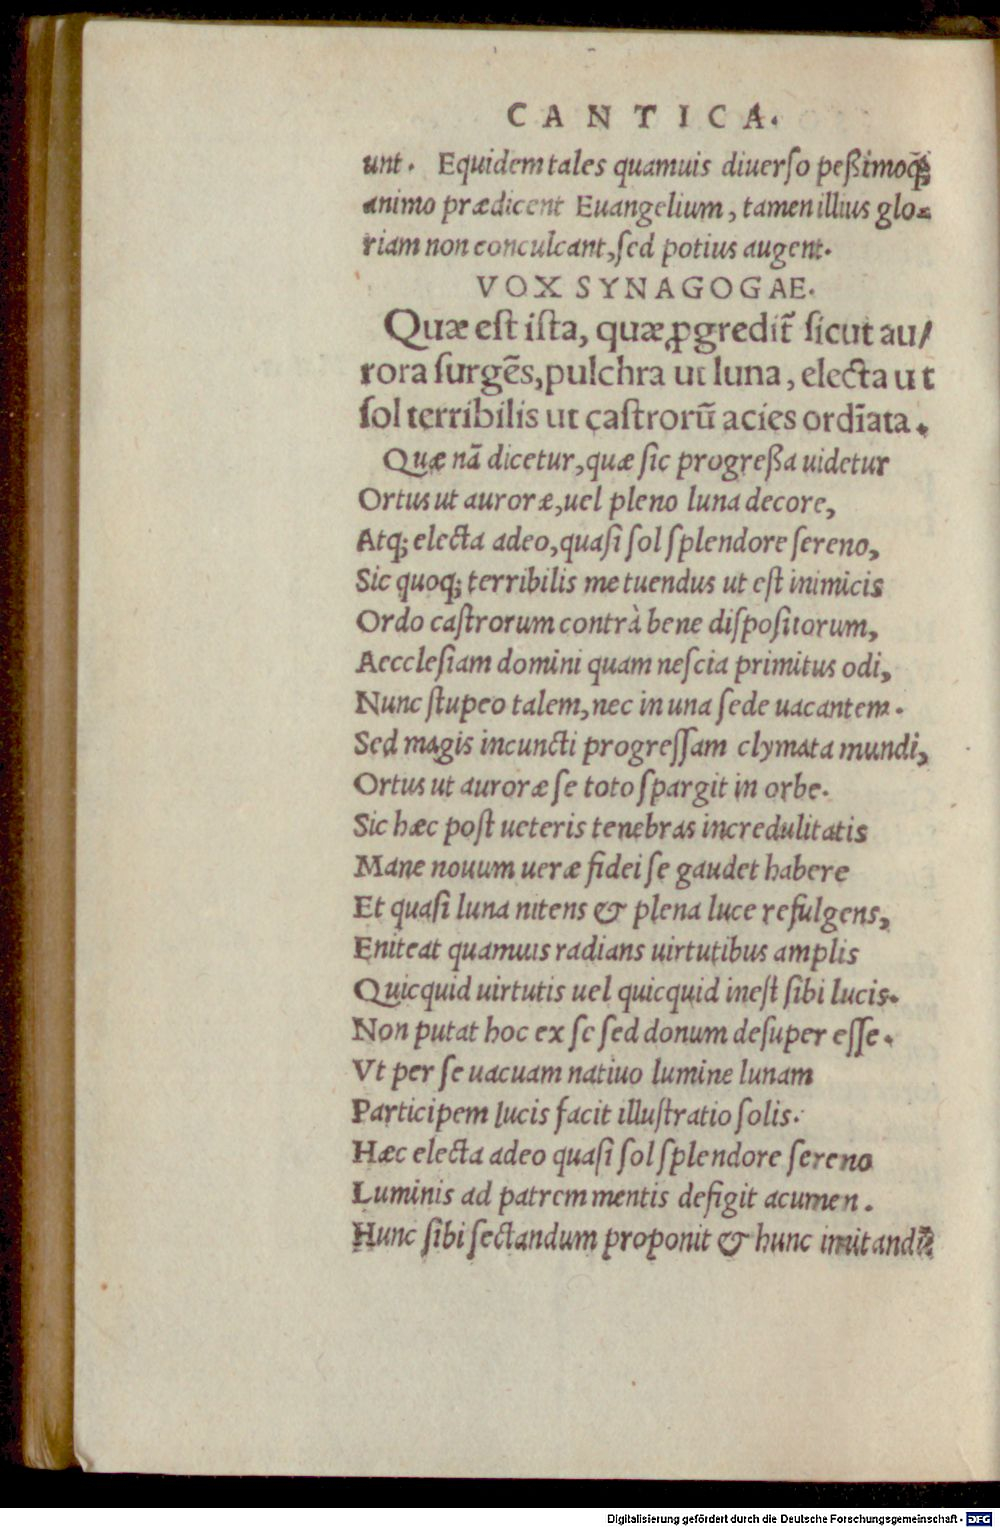 CANTICA.
unt. Equidem tales quamuis diuerso peßimoq̃;
animo prædicent Euangelium, tamen illius glo-
riam non conculcant, sed potius augent.
VOX SYNAGOGAE.
Quæ eſt iſta, quæ ꝓgredit̃ ſicut au/
rora ſurgẽs, pulchra ut luna, electa ut
ſol terribilis ut caſtrorũ acies ordĩata.
Quæ nã dicetur, quæ ſic progreßa uidetur
Ortus ut auroræ, uel pleno luna decore,
Atq; electa adeo, quaſi ſol ſplendore ſereno,
Sic quoq; terribilis metuendus ut eſt inimicis
Ordo caſtrorum contrà bene diſpoſitorum,
Aecclesiam domini quam neſcia primitus odi,
Nunc ſtupeo talem, nec in una ſede uacantem.
Sed magis in cuncti progreſſam clymata mundi,
Ortus ut auroræ ſe toto ſpargit in orbe.
Sic hæc poſt ueteris tenebras incredulitatis
Mane nouum ueræ fidei ſe gaudet habere
Et quaſi luna nitens & plena luce refulgens,
Eniteat quamuis radians uirtutibus amplis
Quicquid uirtutis uel quicquid ineſt ſibi lucis.
Non putat hoc ex ſe ſed donum deſuper eſſe.
Vt per ſe uacuam natiuo lumine lunam
Participem lucis facit illuſtratio ſolis.
Hæc electa adeo quaſi ſol ſplendore ſereno
Luminis ad patrem mentis defigit acumen.
Hunc ſibi ſectandum proponit & hunc imitandũ
Digitalisierung gefördert durch die Deutsche Forschungsgemeinschaft - DFG